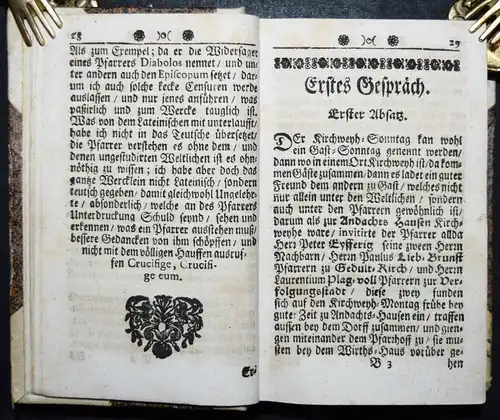 28
Als zum Exempel; da er die Widersager
eines Pfarrers Diabolos nennet / und un-
ter andern auch den Episcopum setzet / dar-
um ich auch solche kecke Censuren werde
auslassen / und nur jenes anführen / was
paßirlich und zum Wercke tauglich ist.
Was von dem Lateinischen mit unterlaufft /
habe ich nicht in das Teutsche übersetzet /
die Pfarrer verstehen es ohne dem / und
denen ungestudirten Weltlichen ist es ohn-
nöthig zu wissen ; ich habe aber doch das
gantze Wercklein nicht Lateinisch / sondern
teutsch gegeben / damit gleichwohl Ungelehr-
te / absonderlich / welche an des Pfarrers
Unterdruckung Schuld seynd / sehen und
erkennen / was ein Pfarrer ausstehen muß /
bessere Gedancken von ihm schöpffen / und
nicht mit dem völligen Hauffen ausruf-
fen Crucifige, Crucifi-
ge eum.
29
Erstes Gespräch.
Erster Absatz.
DEr Kirchweyh-Sonntag kan wohl
ein Gast-Sonntag genennt werden /
dann wo in einem Ort Kirchweyh ist / da kom-
men Gäste zusammen / dann es ladet ein guter
Freund dem andern zu Gast / welches nicht
nur allein unter den Weltlichen / sondern
auch unter den Pfarrern gewöhnlich ist /
darum als zur Andachts Hausen Kirch-
weyhe ware / invitirte der Pfarrer allda
Herr Peter Eyfferig seine zween Herrn
Nachbarn / Herrn Paulus Lieb-Brunst
Pfarrern zu Gedult-Kirch / und Herrn
Laurentium Plag-voll Pfarrern zur Ver-
folgungsstadt / diese zwey fundten
sich auf den Kirchweyh-Montag frühe bey
guter Zeit zu Andachts-Hausen ein / traffen
aussen bey dem Dorff zusammen / und gien-
gen miteinander dem Pfarrhoff zu / sie mu-
sten bey dem Wirths-Haus vorüber ge-
B 3 hen